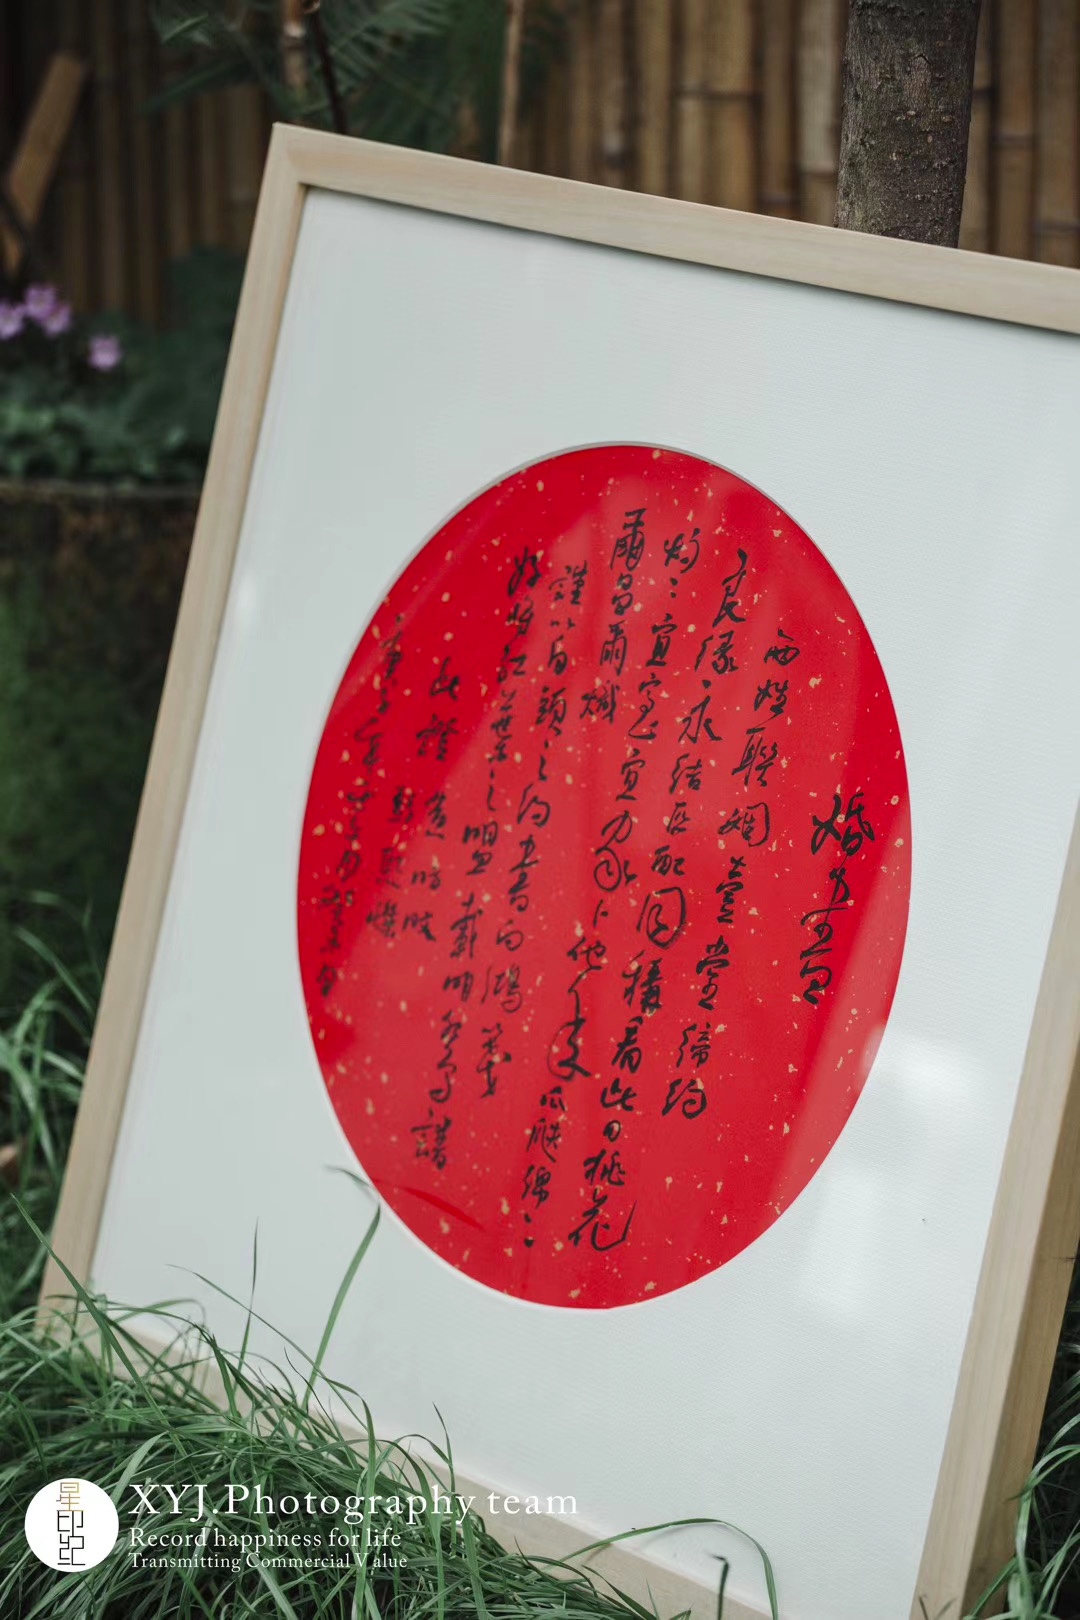 两姓聯姻壹堂締約
良缘永结匹配同稱看此日桃花
灼灼宜室宜家卜他年瓜瓞绵绵
爾昌爾熾
謹以白頭之約書向鴻箋
好將红葉之盟載明鸳譜
此證
星印紀
XYJ.Photography team
Record happiness for life
Transmitting Commercial Value